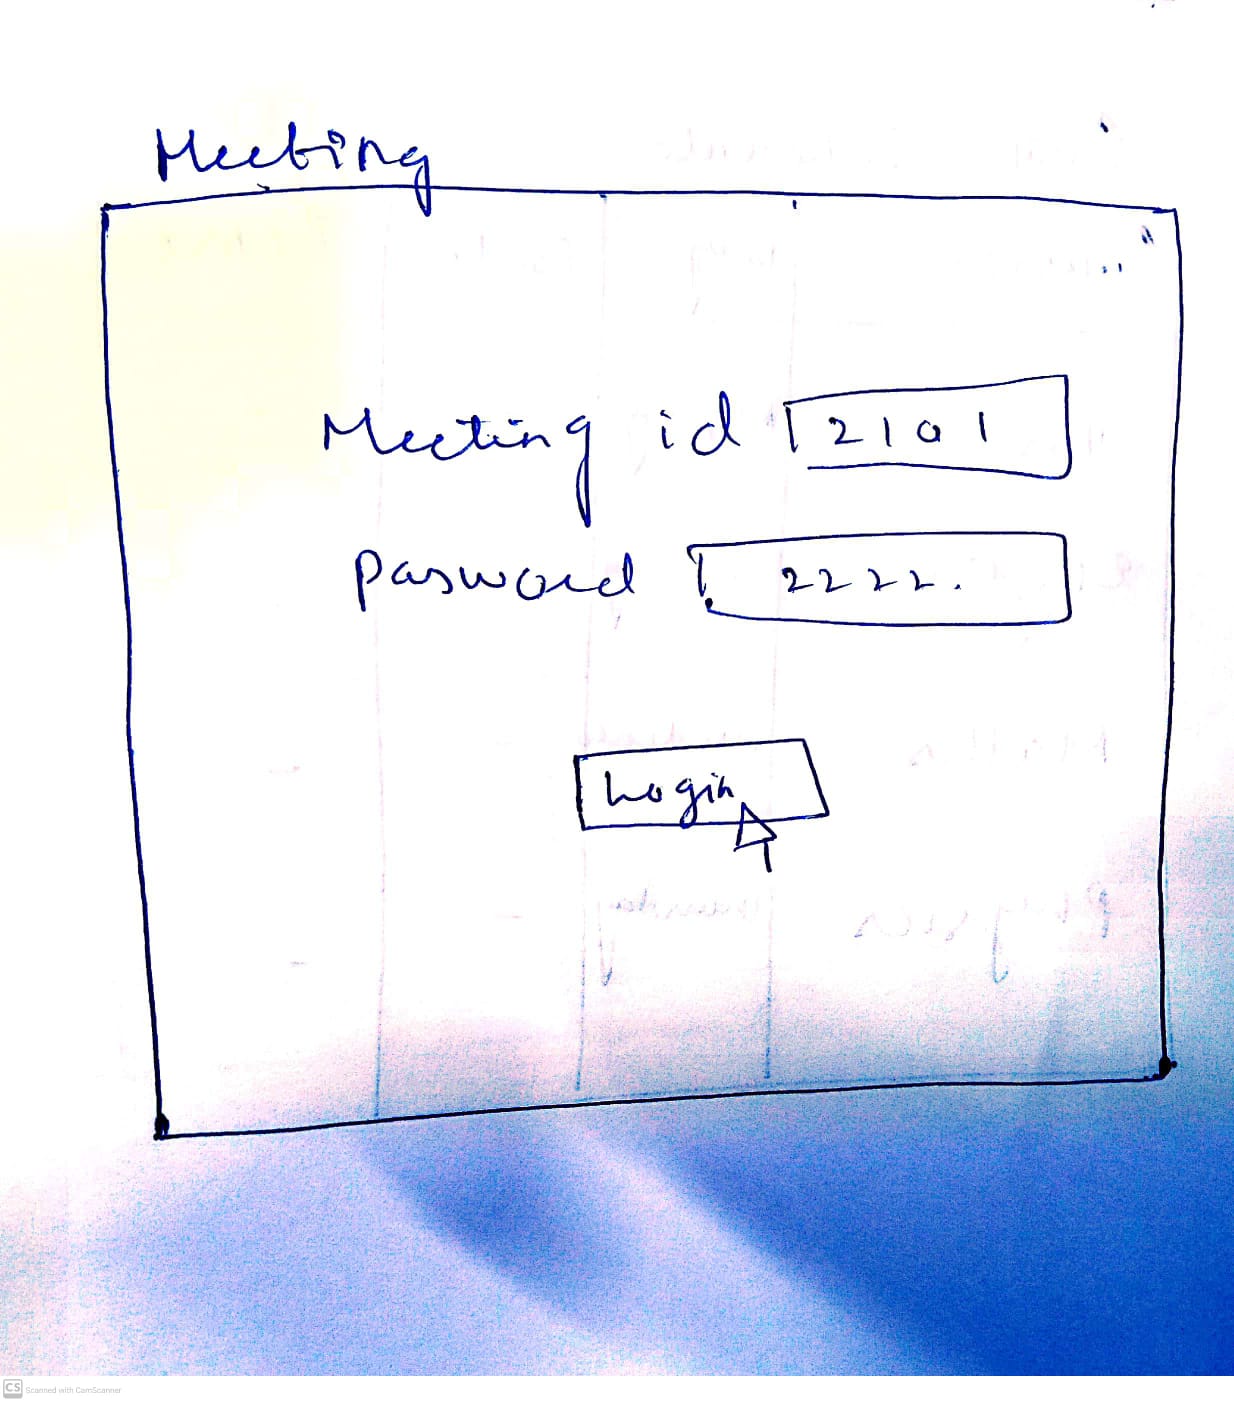 Meeting
Meeting id 2101
pasword 2222.
Login
CS Scanned with CamScanner